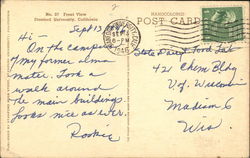 No. 27 Front View
Stanford University, California
HANDCOLORED
POST CARD
Sept 13
Hi —
On the campus
of my former alma
mater. Took a
walk around
the main buildings.
Looks nice as ever.
SEP 14
6-PM
1946
State Dairy &
42 Chem Bldg
U of Wisconsin
Madison 6
Wis.